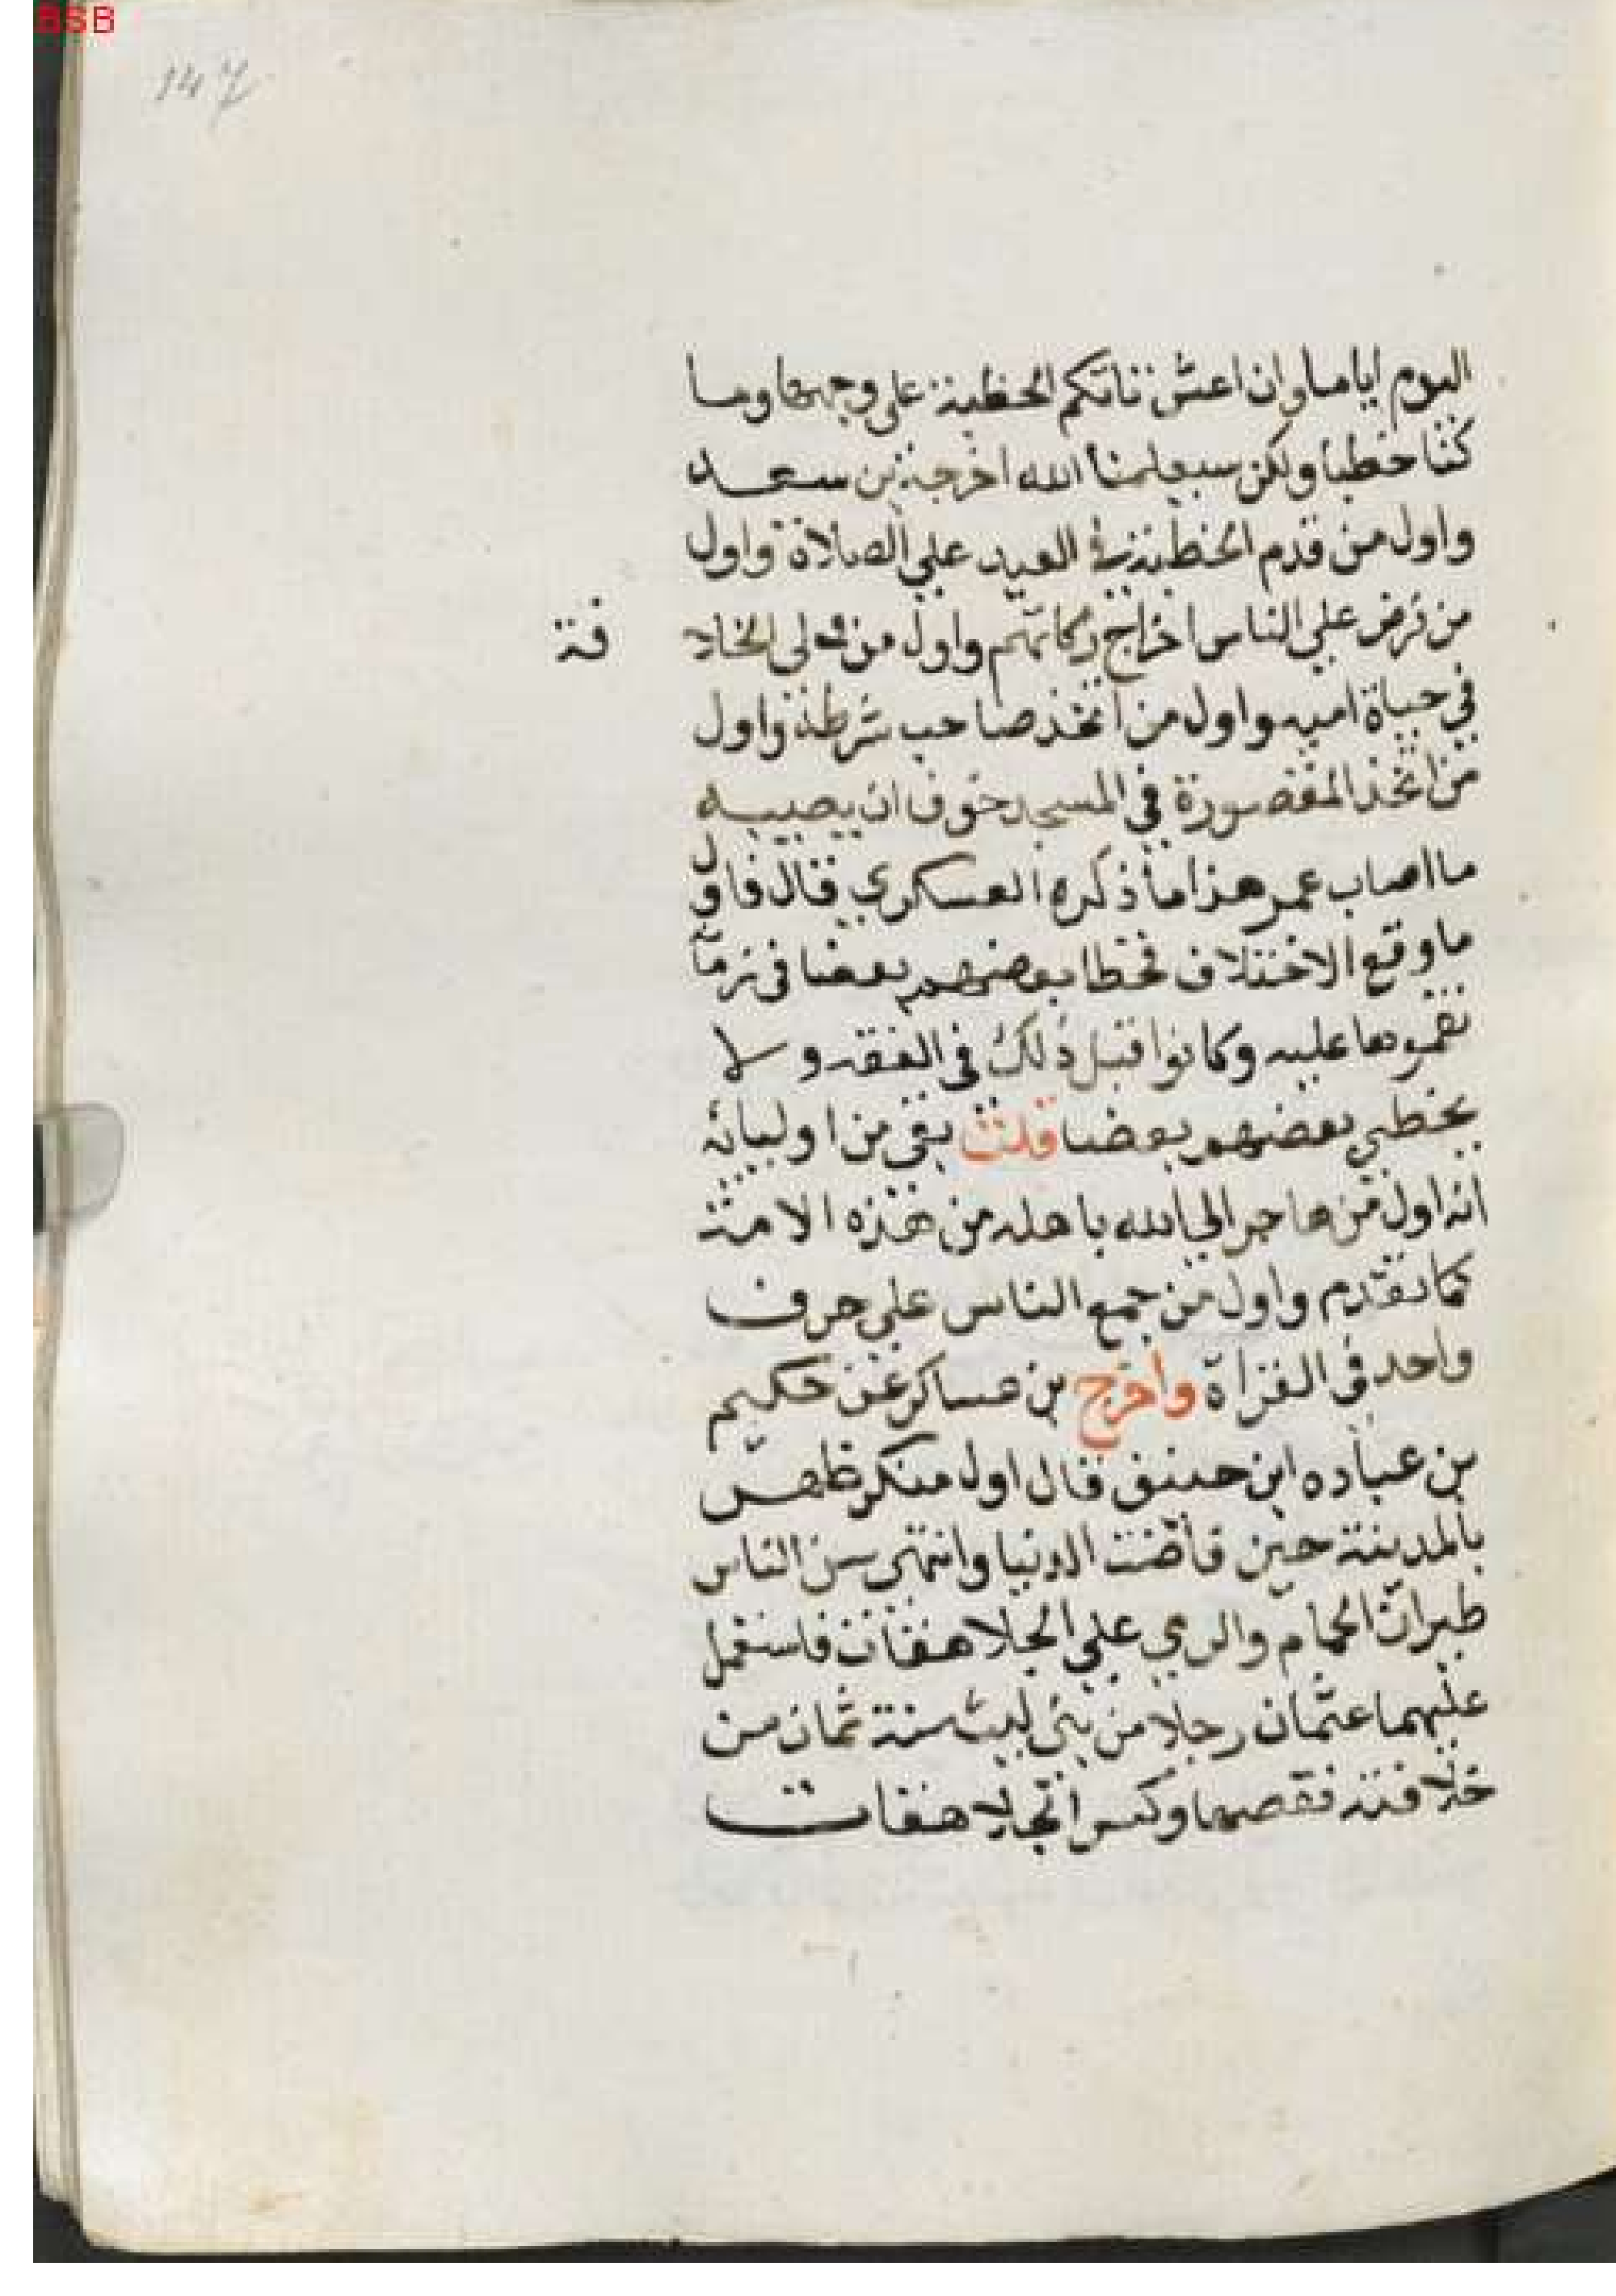 BSB
147
اليوم اياما وان اعش تاتكم الخطبة على وجهها وما
كنا خطبا ولكن سيعلمنا الله اخرجه بن سعد
واول من قدم الخطبة في العيد على الصلاة واول
من فرض على الناس اخراج زكاتهم واول من ولى الخلا فة
في حياة اميه واول من اتخذ صاحب شرطة واول
من اتخذ المقصورة في المسجد خوف ان يصيبه
ما اصاب عمر هذا ما ذكره العسكري قال واول
ما وقع الاختلاف فخطا بعضهم بعضا في زمانه
نقموها عليه وكانوا قبل ذلك في الفقه ولا
يخطي بعضهم بعضا قلت بقى من اولياته
انه اول من هاجر الى الله باهله من هذه الامة
كما تقدم واول من جمع الناس على حرف
واحد في القراة واخرج بن عساكر عن حكيم
بن عباده ابن حنيف قال اول منكر ظهر
بالمدينة حين فاضت الدنيا وانتهى سن الناس
طيران الحمام والرمي على الجلاهقات فاستعمل
عليهما عثمان رجلا من بني ليث سنة ثمان من
خلافته فقصها وكسر الجلاهقات